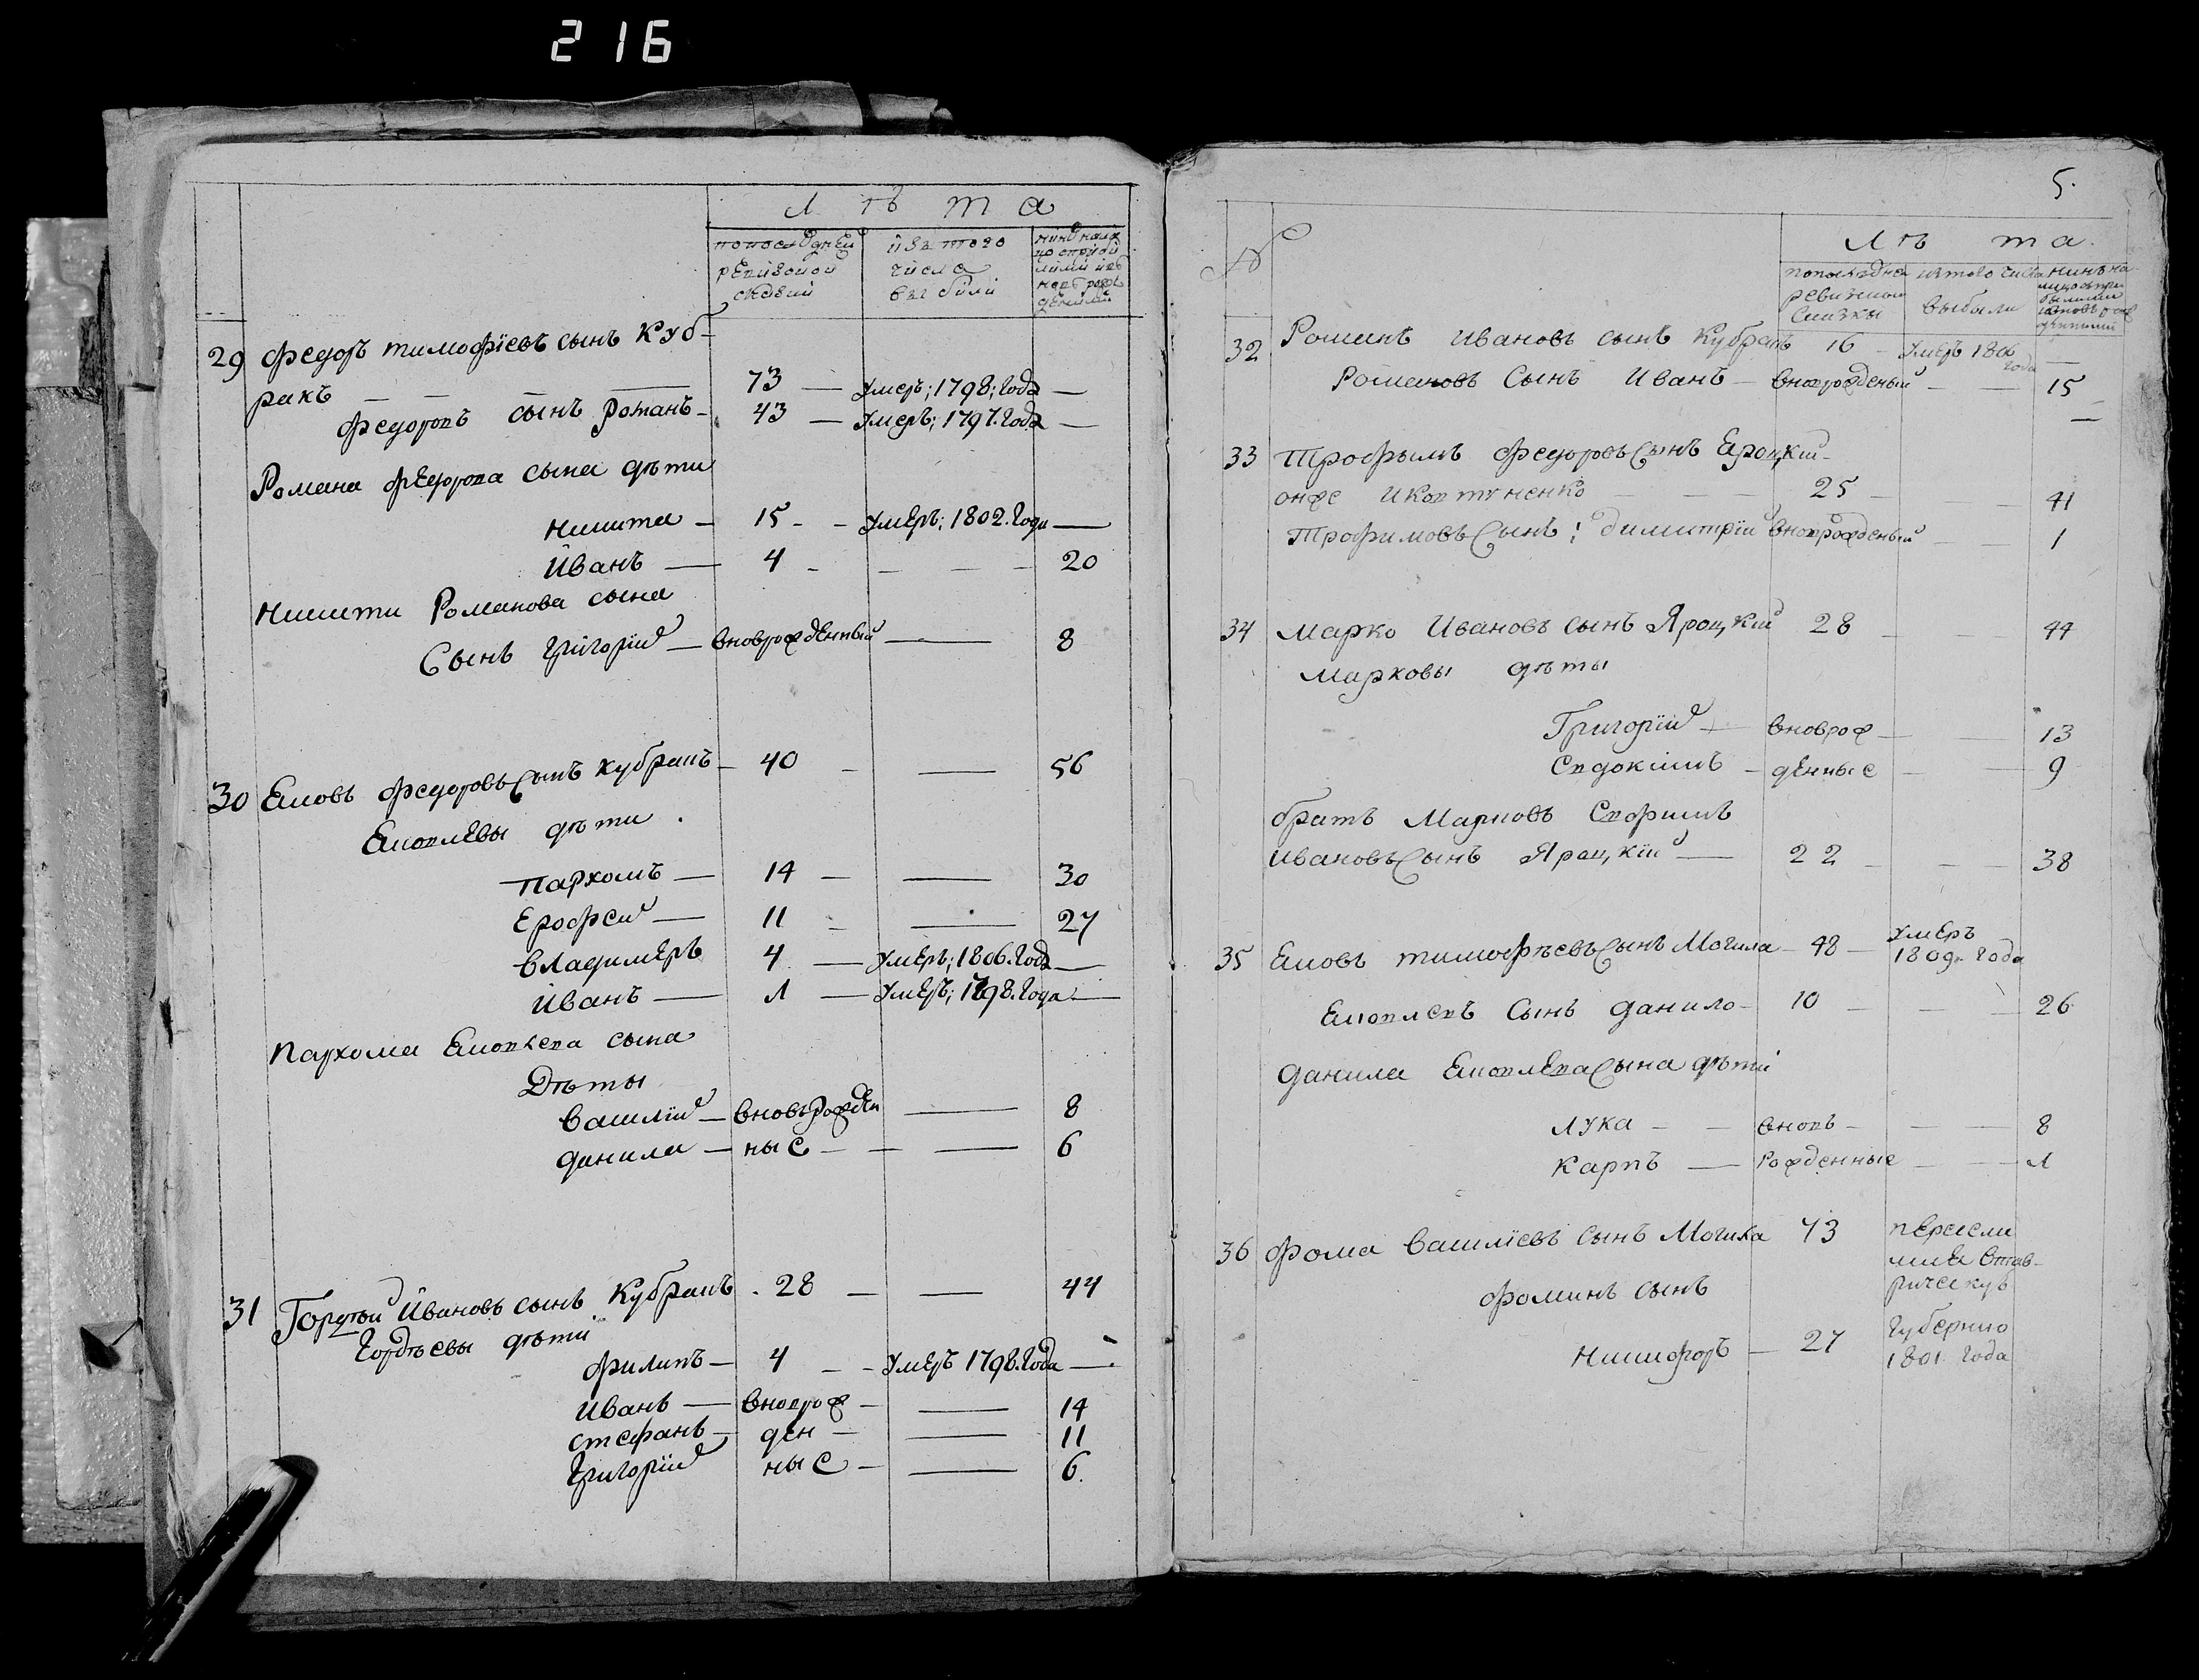 216
Л ѣ т а
попоследнеи ревизской скаски
изъ того числа выбыли
29 Федоръ тимофїевъ сынъ Куб-
ракъ — 73 — Умеръ; 1798; Года —
Федоровъ сынъ Романъ — 43 — Умеръ; 1797. Года —
Романа Федорова сына дѣти
Никита — 15 — Умеръ; 1802. Года —
Иванъ — 4 — — — 20
Никити Романова сына
Сынъ Григорїй — вноврожденный — 8
30 Яковъ Федоровъ Сынъ Кубракъ — 40 — — 56
Яковлевы дѣти.
Пархомъ — 14 — — 30
Ерофей — 11 — — 27
Владимеръ 4 — Умеръ; 1806. Года —
Иванъ — 1 — Умеръ; 1798. Года —
Пархома Яковлева сына
Дѣты
Василїй — вновьрожден — 8
Данила — ные — — 6
31 Гордѣй Ивановъ сынъ Кубракъ. 28 — — 44
Гордѣевы дѣти
Филипъ — 4 — Умеръ 1798. Года —
Иванъ — вноврож — — 14
Стефанъ — ден — — 11
Григорїй ные — — 6.
5.
№
Лѣ та.
попоследней ревизской скаски
изтого числа выбыли
32 Романъ Ивановъ сынъ Кубракъ 16 — Умеръ 1806 года —
Романовъ Сынъ Иванъ — вноврожденый — — 15
33 Трофымъ Федоровъ Сынъ Яроцкий
онже Иковтуненко — — 25 — — 41
Трофимовъ Сынъ: Димитрїй вноврожденый — — 1
34 Марко Ивановъ сынъ Яроцкий 28 — — 44
Марковы дѣты
Григорїй — вноврож — — 13
Евдокимъ — денные — — 9
братъ Марковъ Ефимъ
Ивановъ Сынъ Яроцкїй — 22 — — 38
35 Яковъ тимофѣевъ Сынъ Могила — 48 — Умеръ 1809. Года
Яковлевъ Сынъ Данило — 10 — — 26
Данила Яковлева Сына дѣти
Лука — — вновь — — — 8
Карпъ — рожденные — — 1
36 Фома Василїевъ сынъ Могила 73 пересели
лися втав-
рическую
Фоминъ сынъ
губернию
Никифоръ — 27 1801 года